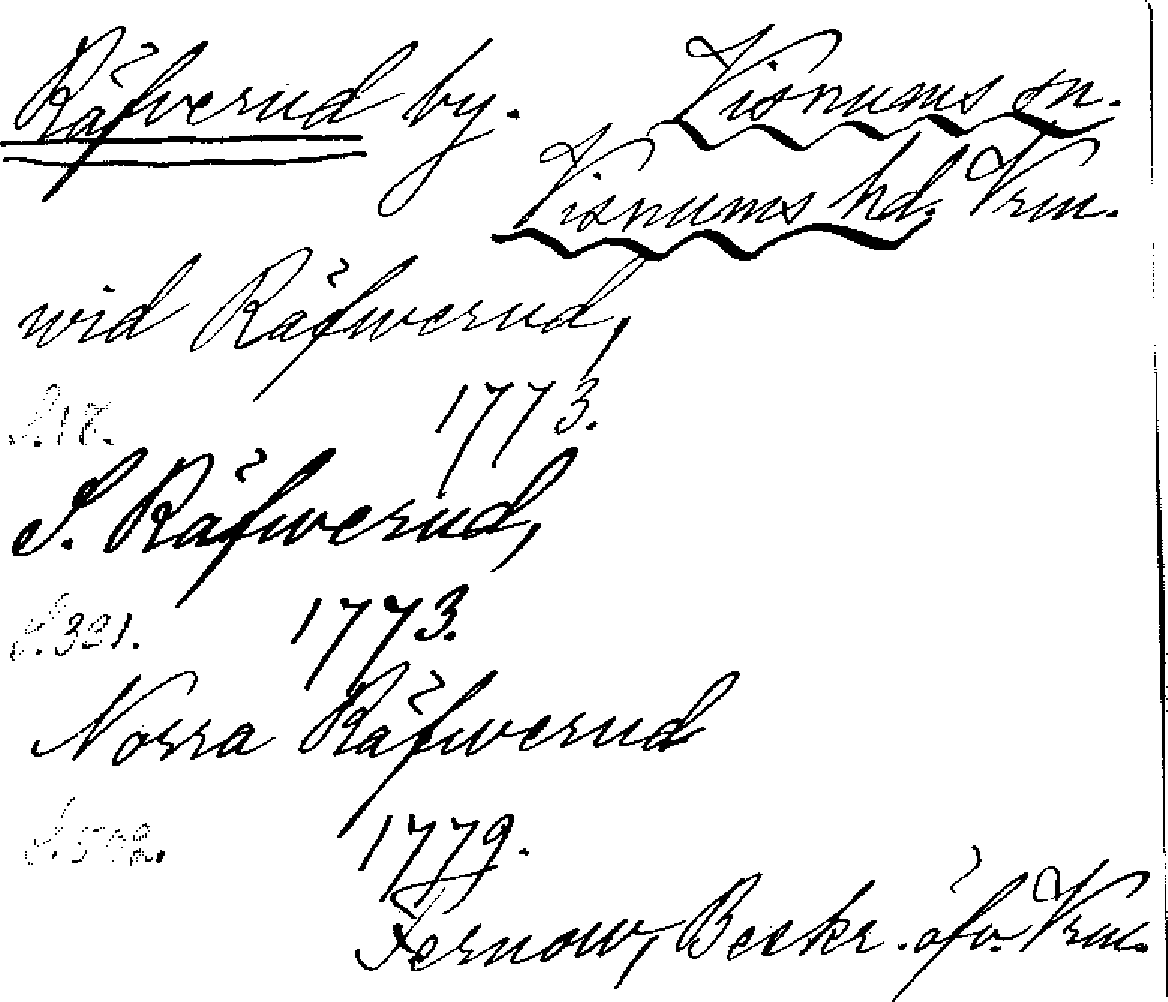 Räfverud by. Visnums sn.
Visnums hd. Vrm.
wid Räfwerud,
S. 18. 1773.
S. Räfwerud,
S. 331. 1773.
Norra Räfwerud
S. 592. 1779.
Fernow, Beskr. öfv. Vrm.